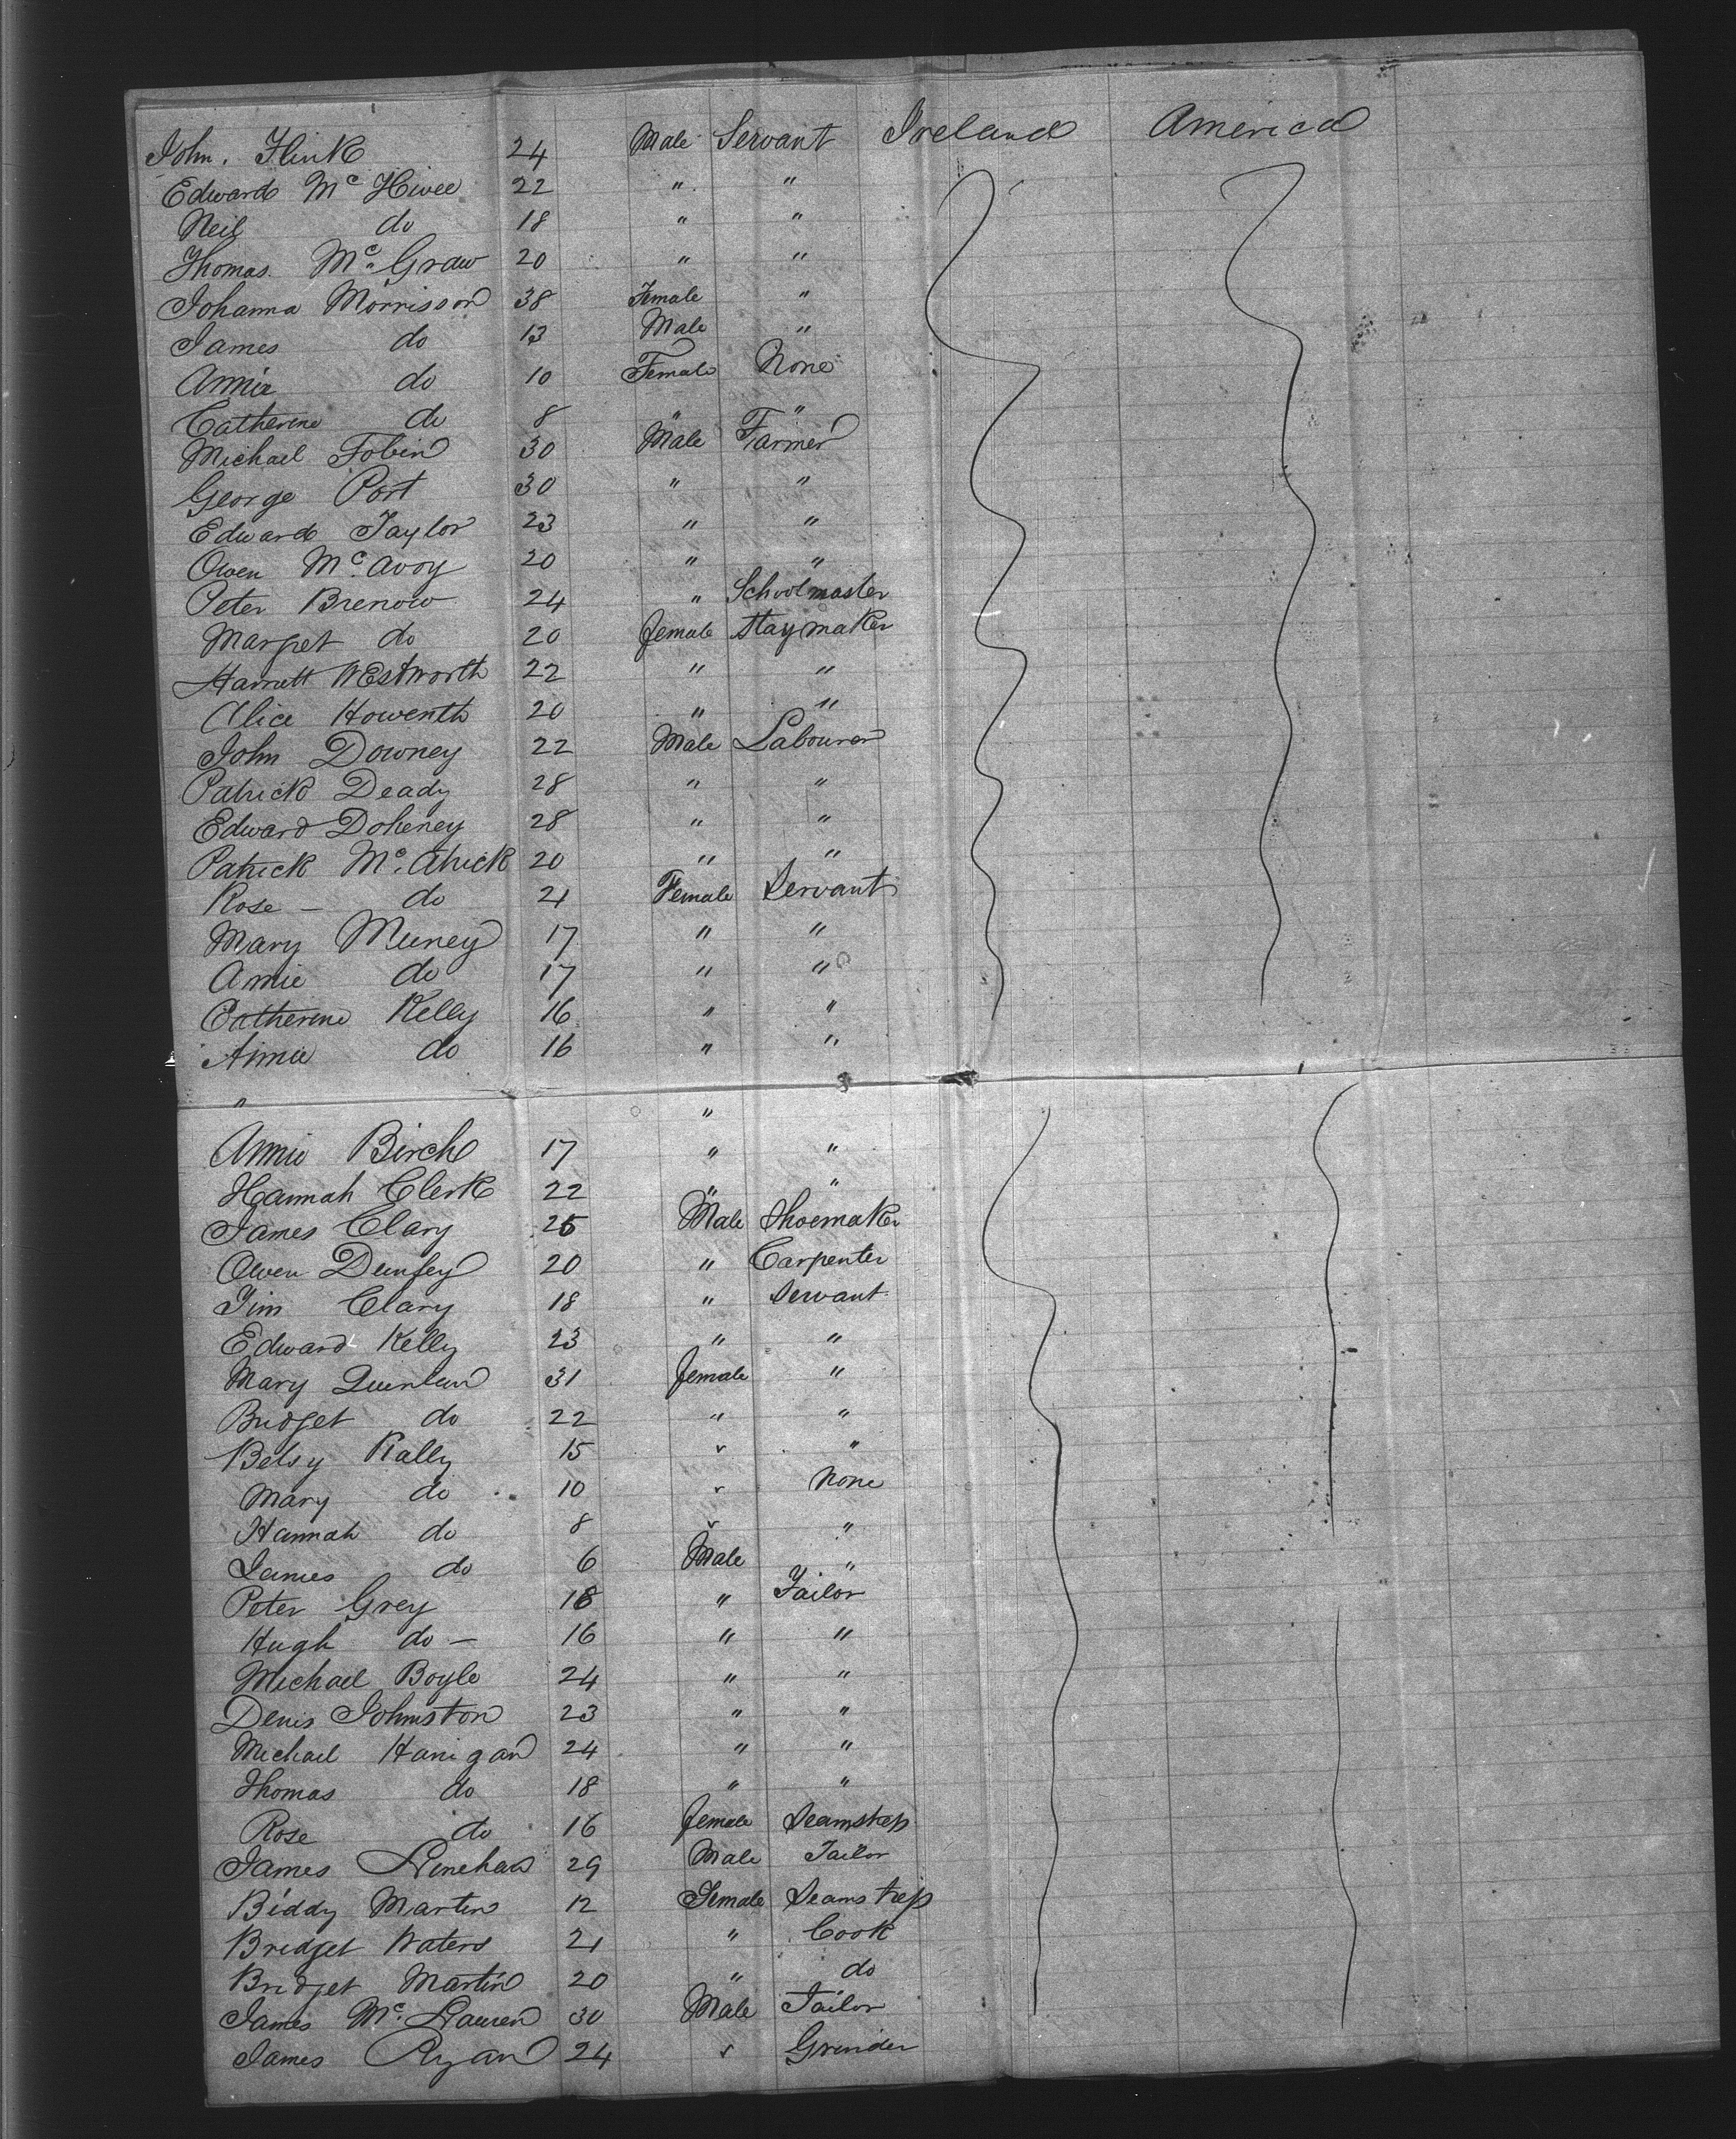 John. Flink 24 Male Servant Ireland America
Edward Mc Hivee 22 " "
Neil do 18 " "
Thomas. Mc Graw 20 " "
Johanna Morrisson 38 Female "
James do 13 Male "
Annie do 10 Female None
Catherine do 8 " "
Michael Tobin 30 Male Farmer
George Port 30 " "
Edward Taylor 23 " "
Owen Mc. Avoy 20 " "
Peter Brenow 24 " Schoolmaster
Marget do 20 female Staymaker
Harrett Westworth 22 " "
Alice Howerth 20 " "
John Downey 22 Male Labourer
Patrick Deady 28 " "
Edward Doheney 28 " "
Patrick Mc. Atrick 20 " "
Rose - do 21 Female Servant
Mary Muney 17 " "
Annie do 17 " "
Catherine Kelly 16 " "
Annie do 16 " "
" "
Annie Birch 17 " "
Hannah Clerk 22 " "
James Clary 25 Male Shoemaker
Owen Dunfey 20 " Carpenter
Jim Clary 18 " Servant
Edward Kelly 23 " "
Mary Quinlan 31 female "
Bridget do 22 " "
Betsy Rally 15 " "
Mary do 10 " None
Hannah do 8 " "
James do 6 Male "
Peter Grey 18 " Tailor
Hugh do - 16 " "
Michael Boyle 24 " "
Denis Johnston 23 " "
Michael Hanigan 24 " "
Thomas do 18 " "
Rose do 16 female Seamstress
James Linehan 29 Male Tailor
Biddy Martin 12 Female Seamstress
Bridget Waters 21 " Cook
Bridget Martin 20 " do
James Mc. Lauren 30 Male Tailor
James Ryan 24 " Grinder